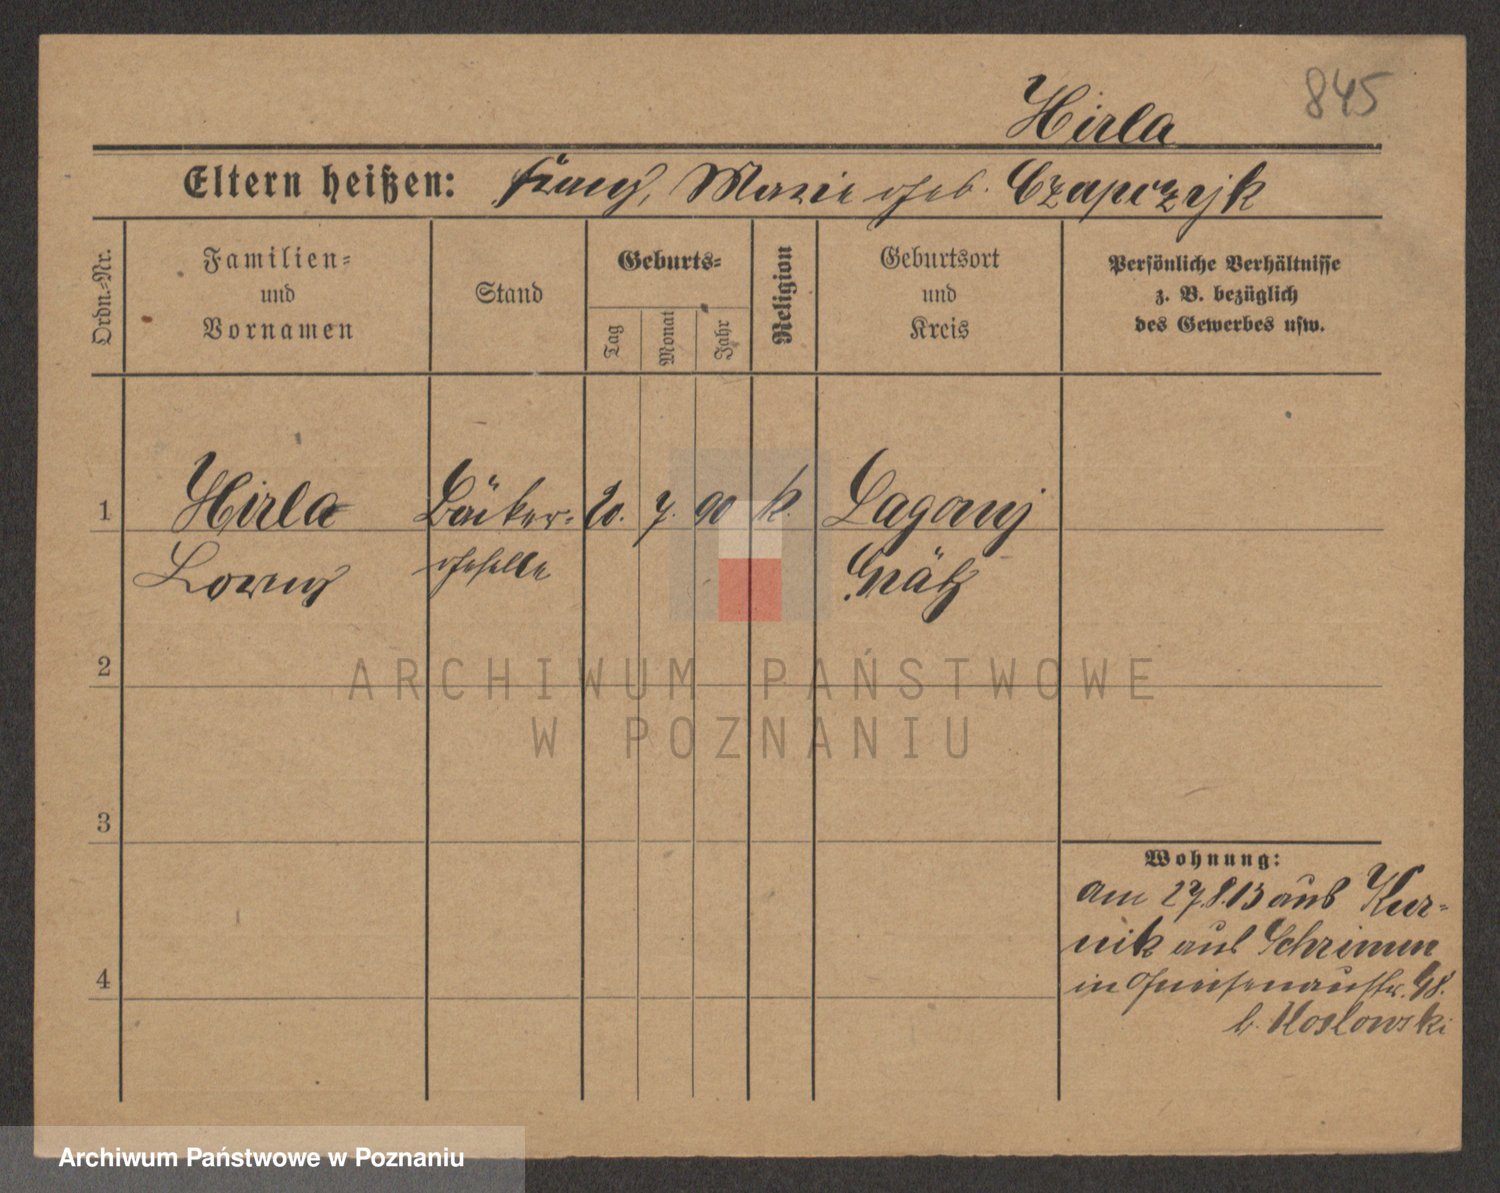 845
Hirla
Eltern heißen: Franz, Marie geb. Czapczyk
Ordn.-Nr.
Familien-
und
Vornamen
Stand
Geburts-
Tag
Monat
Jahr
Religion
Geburtsort
und
Kreis
Persönliche Verhältnisse
z. B. bezüglich
des Gewerbes usw.
1 Hirla Bäcker- 20. 7. 90 k.
Lorenz geselle Grätz
2
ARCHIWUM PAŃSTWOWE
W POZNANIU
3
Wohnung:
am 27.8.13 aus Kur-
nik aus Schrimm
in Gneisenaustr. 48.
b. Koslowski
4
Archiwum Państwowe w Poznaniu